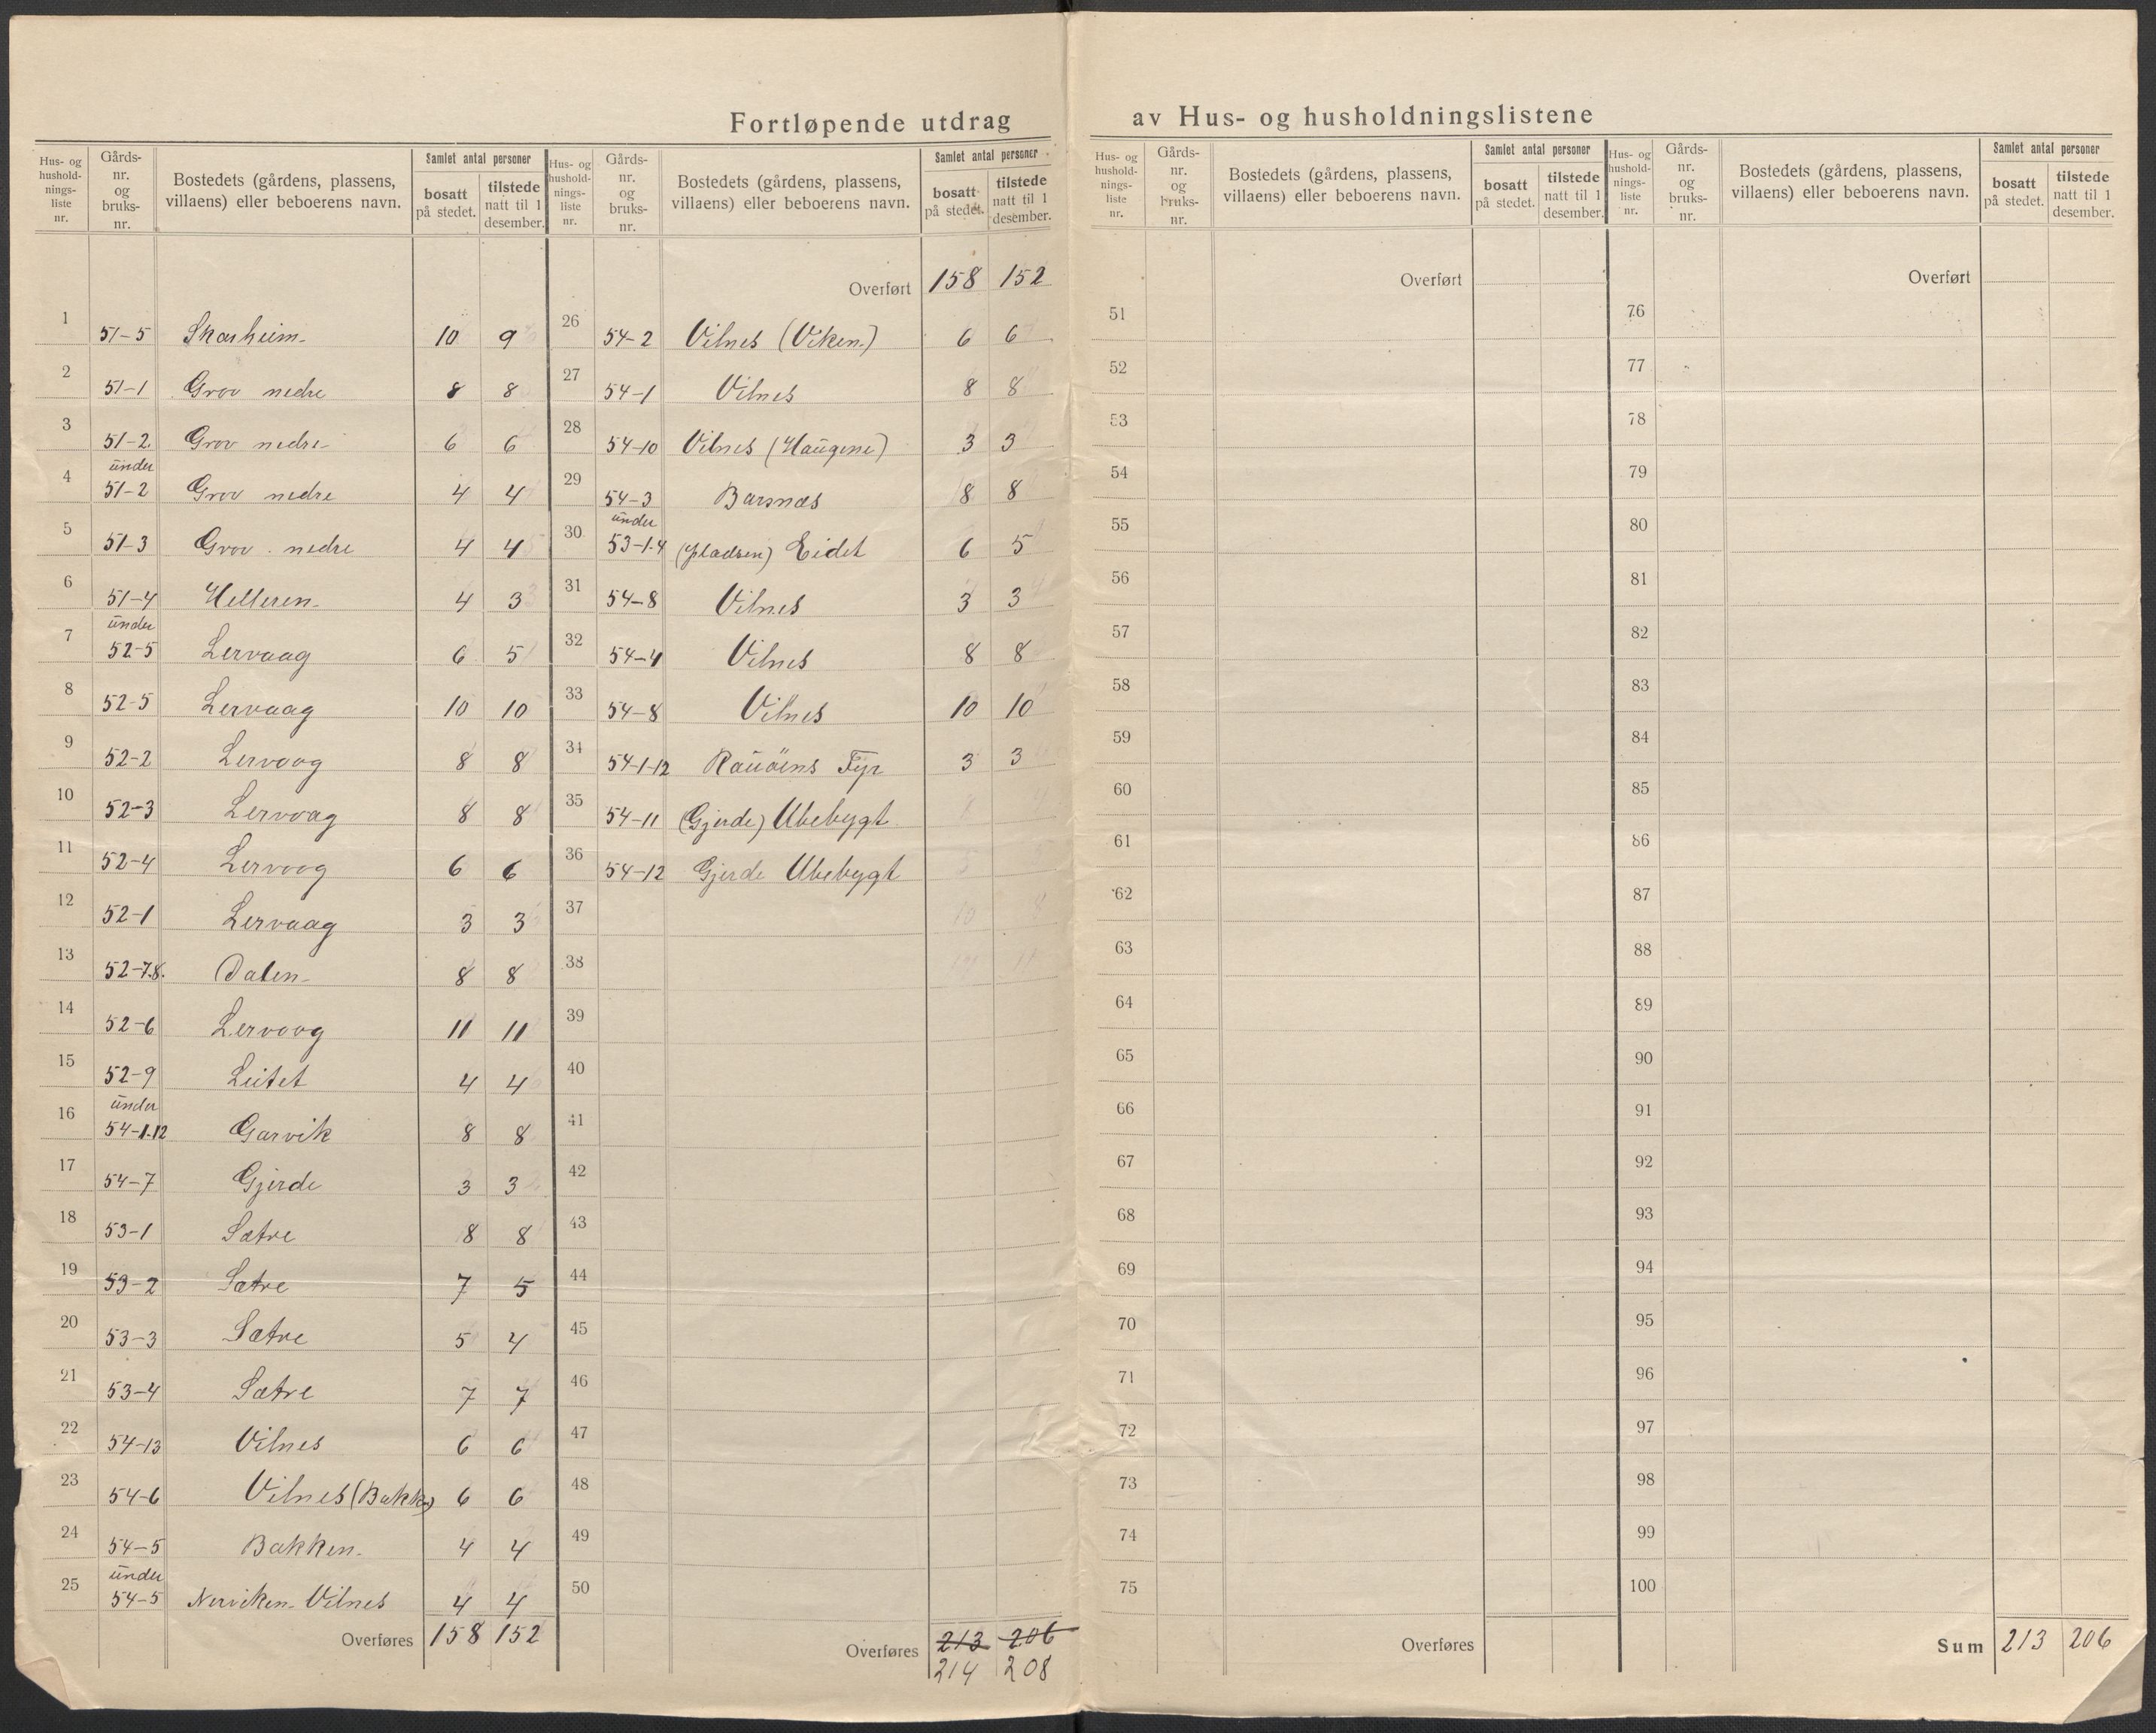 Fortløpende utdrag av Hus- og husholdningslistene
Hus- og hushold-nings-liste nr. | Gårds-nr. og bruks-nr. | Bostedets (gårdens, plassens, villaens) eller beboerens navn. | Samlet antal personer | bosatt på stedet. | tilstede natt til 1 desember.
1 51-5 Skarheim 10 9
2 51-1 Grov nedre 8 8
3 51-2 Grov nedre 6 6
4 under 51-2 Grov nedre 4 4
5 51-3 Grov nedre 4 4
6 51-4 Helleren 4 3
7 under 52-5 Lervaag 6 5
8 52-5 Lervaag 10 10
9 52-2 Lervaag 8 8
10 52-3 Lervaag 8 8
11 52-4 Lervaag 6 6
12 52-1 Lervaag 3 3
13 52-7.8. Dalen 8 8
14 52-6 Lervaag 11 11
15 52-9 Leitet 4 4
16 under 54-1.12 Garvik 8 8
17 54-7 Gjerde 3 3
18 53-1 Sætre 8 8
19 53-2 Sætre 7 5
20 53-3 Sætre 5 4
21 53-4 Sætre 7 7
22 54-13 Vilnes 6 6
23 54-6 Vilnes (Bakke) 6 6
24 54-5 Bakken 4 4
25 under 54-5 Nerviken Vilnes 4 4
Overføres 158 152
Hus- og hushold-nings-liste nr. | Gårds-nr. og bruks-nr. | Bostedets (gårdens, plassens, villaens) eller beboerens navn. | Samlet antal personer | bosatt på stedet. | tilstede natt til 1 desember.
Overført 158 152
26 54-2 Vilnes (Viken) 6 6
27 54-1 Vilnes 8 8
28 54-10 Vilnes (Haugene) 3 3
29 54-3 Barsnæs 8 8
30 under 53-1.4 (pladsen) Eidet 6 5
31 54-8 Vilnes 3 3
32 54-4 Vilnes 8 8
33 54-8 Vilnes 10 10
34 54-1-12 Rauöens Fyr 3 3
35 54-11 (Gjerde) Ubebygt
36 54-12 Gjerde Ubebygt
37
38
39
40
41
42
43
44
45
46
47
48
49
50
Overføres 213 206
214 208
Hus- og hushold-nings-liste nr. | Gårds-nr. og bruks-nr. | Bostedets (gårdens, plassens, villaens) eller beboerens navn. | Samlet antal personer | bosatt på stedet. | tilstede natt til 1 desember.
Overført
51
52
53
54
55
56
57
58
59
60
61
62
63
64
65
66
67
68
69
70
71
72
73
74
75
Overføres
Hus- og hushold-nings-liste nr. | Gårds-nr. og bruks-nr. | Bostedets (gårdens, plassens, villaens) eller beboerens navn. | Samlet antal personer | bosatt på stedet. | tilstede natt til 1 desember.
Overført
76
77
78
79
80
81
82
83
84
85
86
87
88
89
90
91
92
93
94
95
96
97
98
99
100
Sum 213 206